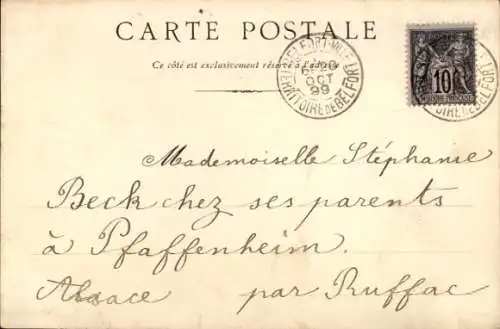 CARTE POSTALE
Ce côté est exclusivement réservé à l'adresse
BELFORT-VILLE
OCT
99
TERRITOIRE DE BELFORT
10
Mademoiselle Stéphanie
Beck chez ses parents
à Pfaffenheim.
Alsace par Ruffac